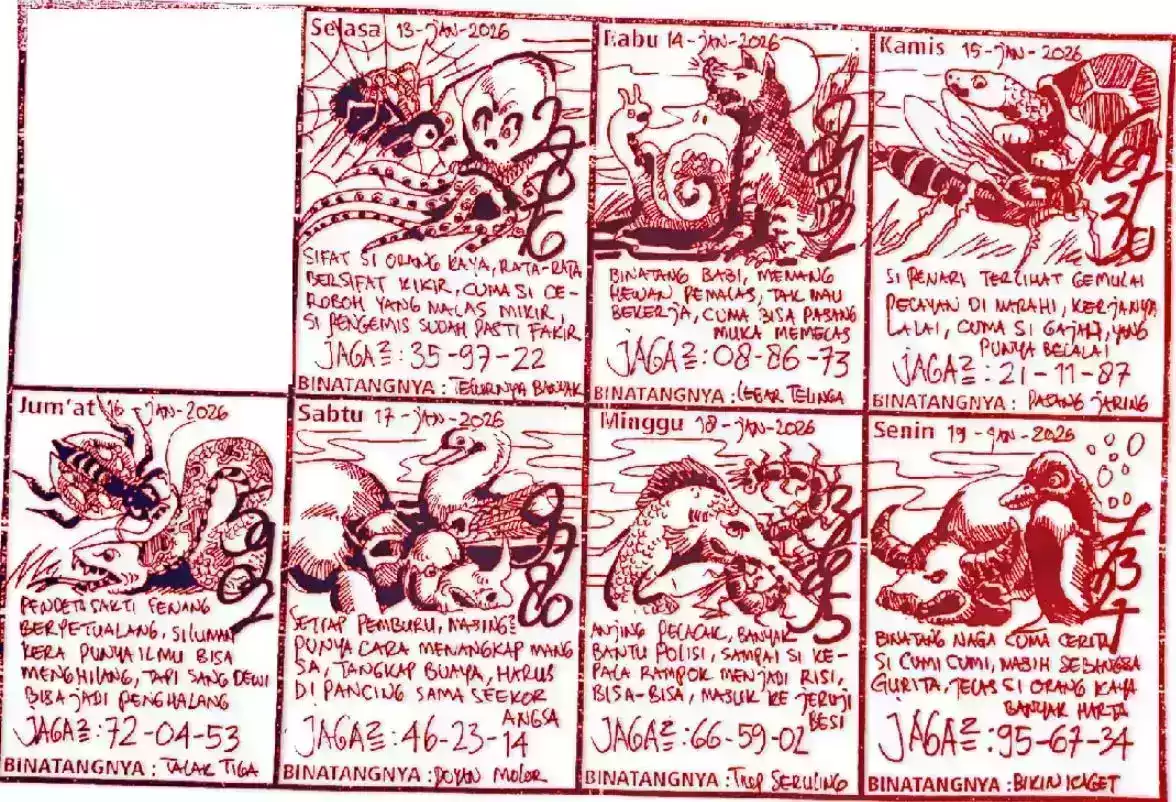 Selasa 13-JAN-2026
SIFAT SI ORANG KAYA, RATA-RATA
BERSIFAT KIKIR, CUMA SI CE-
ROBOH YANG MALAS MIKIR,
SI PENGEMIS SUDAH PASTI FAKIR
JAGA2: 35-97-22
BINATANGNYA : TELURNYA BANYAK
Rabu 14-JAN-2026
BINATANG BABI, MENANG
HEWAN PEMALAS, TAK MAU
BEKERJA, CUMA BISA PASANG
MUKA MEMELAS
JAGA2: 08-86-73
BINATANGNYA : LEBAR TELINGA
Kamis 15-JAN-2026
SI PENARI TERLIHAT GEMULAI
PELAYAN DI MARAHI, KERJANYA
LALAI, CUMA SI GAJAH, YANG
PUNYA BELALAI
JAGA2: 21-11-87
BINATANGNYA : PASANG JARING
Jum'at 16-JAN-2026
PENDETA SAKTI SENANG
BERPETUALANG, SILUMAN
KERA PUNYA ILMU BISA
MENGHILANG, TAPI SANG DEWI
BISA JADI PENGHALANG
JAGA2: 72-04-53
BINATANGNYA : TALAK TIGA
Sabtu 17-JAN-2026
SETIAP PEMBURU, MASING2
PUNYA CARA MENANGKAP MANG
SA, TANGKAP BUAYA, HARUS
DI PANCING SAMA SEEKOR
ANGSA
JAGA2: 46-23-14
BINATANGNYA : DOYAN MOLOR
Minggu 18-JAN-2026
ANJING PELACAK, BANYAK
BANTU POLISI, SAMPAI SI KE-
PALA RAMPOK MENJADI RISI,
BISA-BISA, MASUK KE JERUJI
BESI
JAGA2: 66-59-02
BINATANGNYA : TIUP SERULING
Senin 19-JAN-2026
BINATANG NAGA CUMA CERITA
SI CUMI CUMI, MASIH SEBANGSA
GURITA, JELAS SI ORANG KAYA
BANYAK HARTA
JAGA2: 95-67-34
BINATANGNYA : BIKIN KAGET